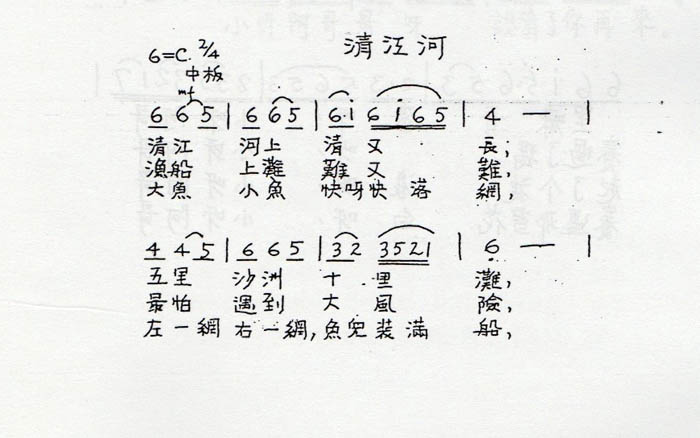 清江河
6=C. 2/4
中板
mf
6 6 5 | 6 6 5 | 6·i 6 i 6 5 | 4 — |
清江 河上 清又 長;
漁船 上灘 難又 難,
大魚 小魚 快呀快落 網,
4 4 5 | 6 6 5 | 3 2 3 5 2 1 | 6 — |
五里 沙洲 十里 灘,
最怕 遇到 大風 險,
左一網 右一網, 魚兒裝滿 船,